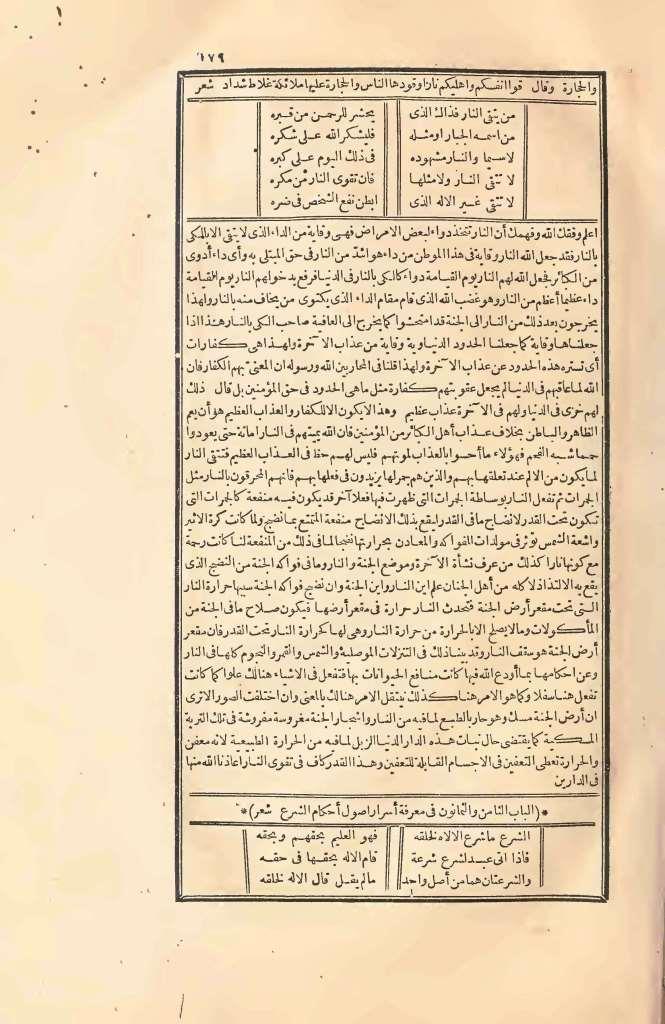 ١٧٩
والحجارة وقال قوا انفسكم وأهليكم نارا وقودها الناس والحجارة عليها ملائكة غلاظ شداد شعر
من يتقى النار فذاك الذى يحشر للرحمن من قبره
من اسمه الجبار أو مثله فليشكر الله على شكره
لاسيما والنار مشهوده فى ذلك اليوم على كبره
لا تتقى النار ولا مثلها فان تقوى النار من مكره
لا تتقى غير الاله الذى ابطن نفع الشخص فى ضره
اعلم وفقك الله وفهمك أن النار تتخذ دواء لبعض الامراض فهى وقاية من الداء الذى لا يتقى الا بالكى
بالنار فقد جعل الله النار وقاية فى هذا الموطن من داء هو اشد من النار فى حق المبتلى به وأى داء أدوى
من الكبائر فجعل الله لهم النار يوم القيامة دواء كالكى بالنار فى الدنيا فرفع بدخولهم النار يوم القيامة
داء عظيما أعظم من النار وهو غضب الله الذى قام مقام الداء الذى يكتوى من يخاف منه بالنار ولهذا
يخرجون بعد ذلك من النار الى الجنة قد امتحشوا كما يخرج الى العافية صاحب الكى بالنار هذا اذا
جعلناها وقاية كما جعلنا الحدود الدنياوية وقاية من عذاب الآخرة ولهذا هى كفارات
أى تستره هذه الحدود عن عذاب الآخرة ولهذا قلنا فى المحاربين الله ورسوله ان المعنى بهم الكفار فان
الله لما عاقبهم فى الدنيا لم يجعل عقوبتهم كفارة مثل ماهى الحدود فى حق المؤمنين بل قال ذلك
لهم خزى فى الدنيا ولهم فى الآخرة عذاب عظيم وهذا لا يكون الا للكفار والعذاب العظيم هو أن يعم
الظاهر والباطن بخلاف عذاب أهل الكبائر من المؤمنين فان الله يميتهم فى النار اماتة حتى يعودوا
حمما شبه الفحم فهؤلاء ما أحسوا بالعذاب لموتهم فليس لهم حظ فى العذاب العظيم فتتقى النار
لما يكون من الالم عند تعلقها بهم والذين هم جمرها يزيدون فى فعلها بهم فانهم المحرقون بالنار مثل
الجمرات ثم تفعل النار بوساطة الجمرات التى ظهرت فيها فعلا آخر قد يكون فيه منفعة كالجمرات التى
تتكون تحت القدر لانضاج مافى القدر ليقع بذلك الانضاج منفعة المتمتع بما نضج ولما كانت كرة الاثير
واشعة الشمس تؤثر فى مولدات الفواكه والمعادن بحرارتها نضجا لما فى ذلك من المنفعة لنا كانت رحمة
مع كونها نارا كذلك من عرف نشأة الآخرة وموضع الجنة والنار وما فى فواكه الجنة من النضج الذى
يقع به الالتذاذ لا كله من أهل الجنان علم اين النار واين الجنة وان نضج فواكه الجنة سببها حرارة النار
التى تحت مقعر أرض الجنة فتحدث النار حرارة فى مقعر أرضها فيكون صلاح مافى الجنة من
المأكولات وما لا يصلح الا بالحرارة من حرارة النار وهى لها كحرارة النار تحت القدر فان مقعر
أرض الجنة هو سقف النار وقد بينا ذلك فى التنزلات الموصلية والشمس والقمر والنجوم كلها فى النار
وعن احكامها بما أودع الله فيها كانت منافع الحيوانات بها فتفعل فى الاشياء هنالك علوا كما كانت
تفعل هنا سفلا وكما هو الامر هنا كذلك ينتقل الامر هنالك بالمعنى وان اختلفت الصور الاترى
ان أرض الجنة مسك وهو حار بالطبع لما فيه من النار واشجار الجنة مغروسة مفروشة فى تلك التربة
المسكية كما يقتضى حال نبات هذه الدار الدنيا الزبل لما فيه من الحرارة الطبيعية لانه معفن
والحرارة تعطى التعفين فى الاجسام القابلة للتعفين وهذا القدر كاف فى تقوى النار اعاذنا الله منها
فى الدارين
*(الباب الثامن والثمانون فى معرفة أسرار اصول أحكام الشرع شعر)*
الشرع ما شرع الالاه لخلقه فهو العليم بحقهم وبحقه
فاذا اتى عبد لشرع شرعة قام الاله بحقها فى حقه
والشرعتان هما من أصل واحد مالم يقل قال الاله لخلقه